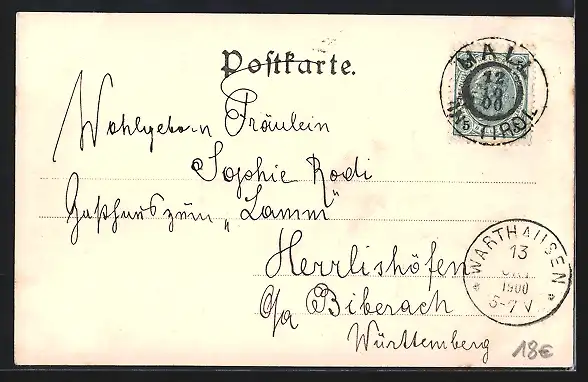 Postkarte.
HALL
12
10
00
IN TIROL
Wohlgeborn Fräulein
Sophie Rodi
Gasthaus zum „Lamm"
Herrlishöfen
O/a Biberach
Württemberg
* WARTHAUSEN *
13
OKT
1900
5-7 V
18€